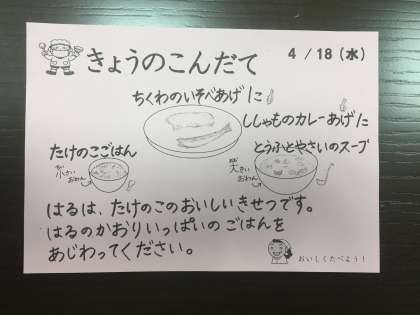 きょうのこんだて
4 / 18 (水)
ちくわのいそべあげ に
ししゃものカレーあげ に
たけのこごはん
小さい
おわん
とうふとやさいのスープ
大きい
おわん
はるは、たけのこのおいしいきせつです。
はるのかおりいっぱいのごはんを
あじわってください。
おいしくたべよう!